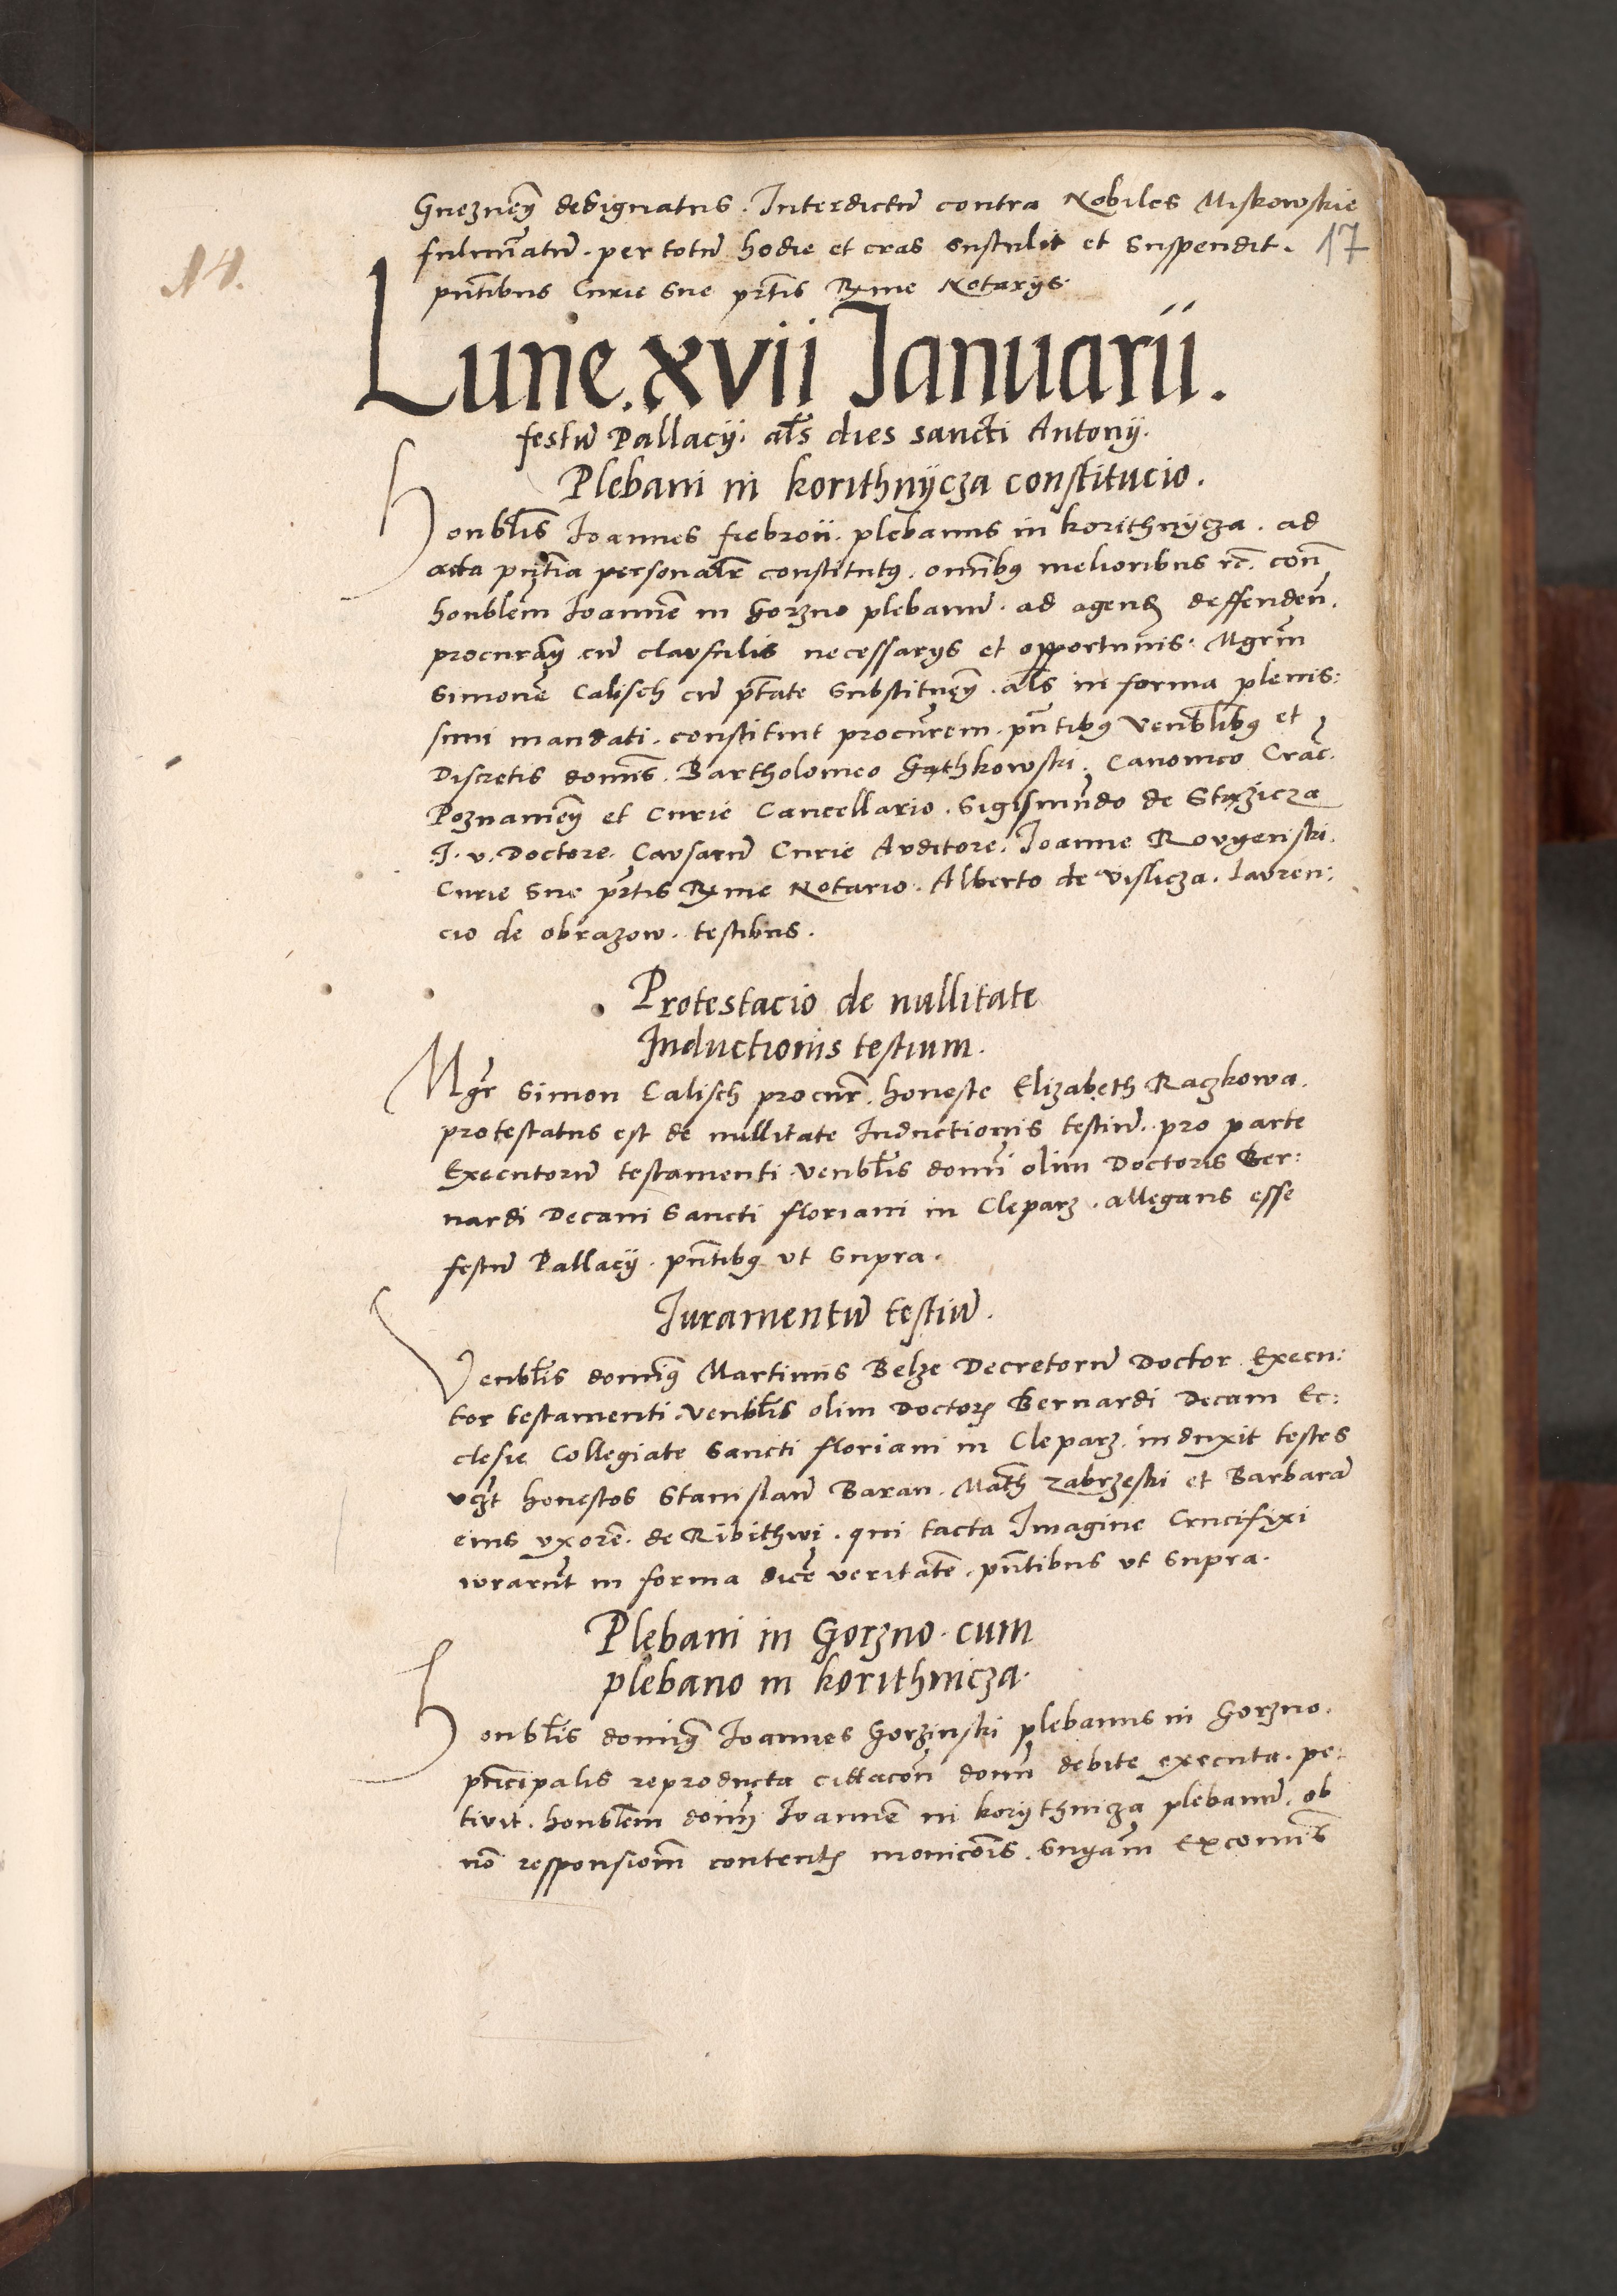 Gneznen̄ designatus. Interdictū contra Nobiles Miskowskie
fulminatū. per totū hodie et cras sustulit et suspendit. 17
14.
pn̄tibus Curie sue prt̄is Rx̄me Notarijs.
Lune. xvii Januarii.
festū Pallacij. al̄s dies sancti Antonij.
Plebani in korithnÿcza constitucio.
Honbl̄is Joannes fiebroii. plebanus in korithnÿcza. ad
acta pn̄tia personalr̄ constitutꝰ. omībꝰ melioribus rc̄. con̄
honblem̄ Joannē in Gorzno plebanū. ad agend̄ deffenden̄.
procuran̄ cū clausulis necessarijs et opportunis. Mgrm̄
Simonē Calisch cū ptāte substituen̄. al̄s in forma plenis:
simi mandati. constituit procur̄em. pn̄tibꝰ Venbl̄ibꝰ et
Discretis domīs. Bartholomeo Gąthkowski. Canonico Crac̄.
Poznanien̄ et Curie Cancellario. Sigismūdo de Stęzicza
J. v. Doctore. Causarū Curie Auditore. Joanne Rouyenski.
Curie sue prt̄is Rx̄me Notario. Alberto de vislicza. lauren:
cio de obrazow. testibus.
Protestacio de nullitate
Inductionis testium.
Mgr̄ Simon Calisch procur̄. honeste Elizabeth Raczkowa.
protestatus est de nullitate Inductionis testiū. pro parte
Executorū testamenti venbl̄is domi̅ olim Doctoris Ber:
nardi Decani Sancti floriani in Cleparz. allegans esse
festū Pallacij. pn̄tibꝰ ut supra.
Juramentū testiū.
Venbl̄is domīꝰ Martinus Belze Decretorū Doctor Execu:
tor testamenti. venbl̄is olim Doctorꝭ Bernardi Decani Ec:
clesie Collegiate Sancti floriani in Cleparz. induxit testes
vcz̄t honestos Stanislaū Baran. Math̄ zabrzeski et Barbarā
eius vxorē. de Ribithwi. qui tacta Imagine Crucifixi
iurarūt in forma dicer̄ veritatē. pn̄tibus ut supra.
Plebani in Gorzno. cum
plebano in korithnicza.
Honbl̄is domīꝰ Joannes Gorzinski plebanus in Gorzno.
prīcipalis reproducta cittacon̄ domī debite executa. pe:
tivit. honblem̄ domī Joannē in korÿthnicza plebanū. ob
nō responsionē contentꝭ monicōis. Excomīs